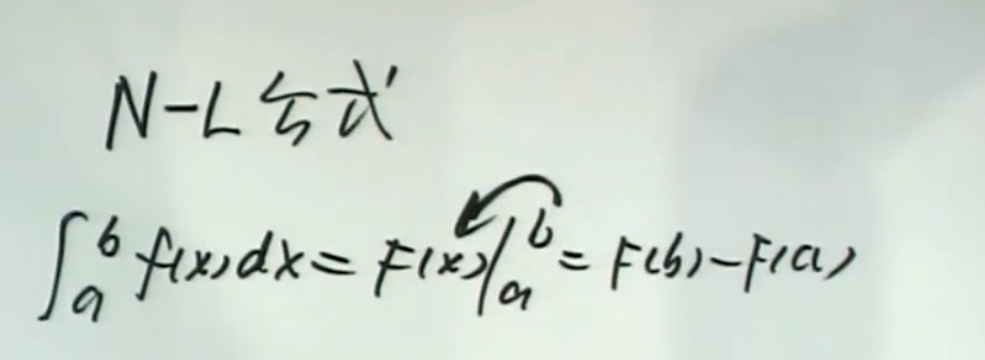 N-L公式
∫_a^b f(x)dx = F(x)|_a^b = F(b)-F(a)